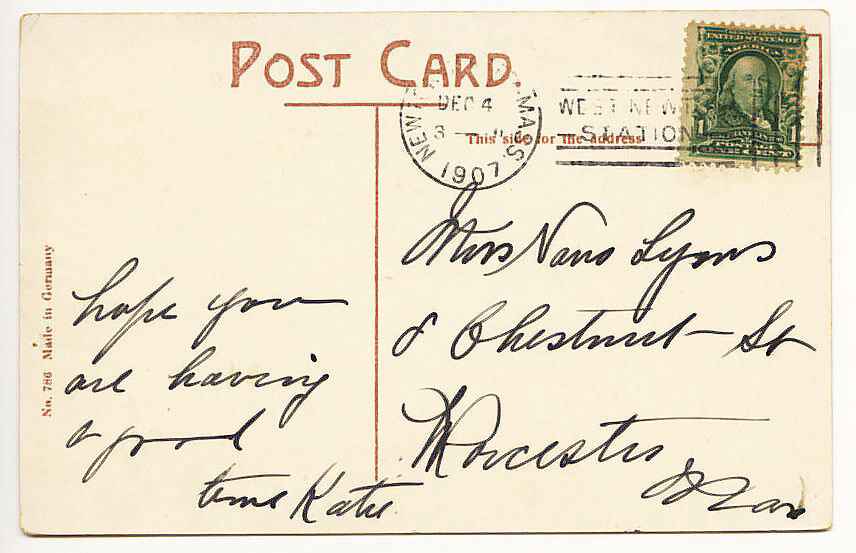 POST CARD.
NEW MASS.
DEC 4
3 —
1907
WEST NEWT
STATION
UNITED STATES OF
AMERICA
1 1
This side for the address
Miss Nano Lyons
8 Chestnut St
Worcester
Mass
hope you
are having
a good
time Katie
No. 786 Made in Germany